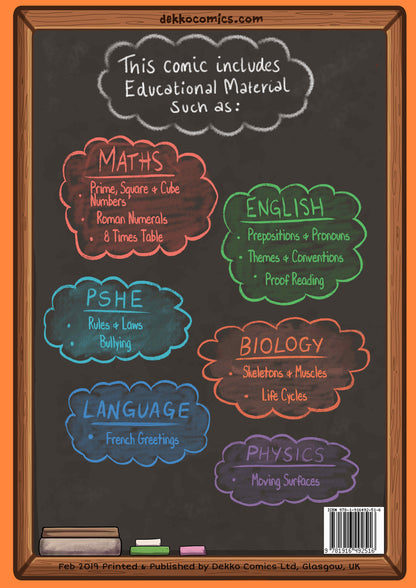 dekkocomics.com
This Comic includes
Educational Material
Such as:
MATHS
• Prime, Square & Cube
Numbers
• Roman Numerals
• 8 Times Table
ENGLISH
• Prepositions & Pronouns
• Themes & Conventions
• Proof Reading
PSHE
• Rules & Laws
• Bullying
BIOLOGY
• Skeletons & Muscles
• Life Cycles
LANGUAGE
• French Greetings
PHYSICS
• Moving Surfaces
Feb 2019 Printed & Published by Dekko Comics Ltd, Glasgow, UK